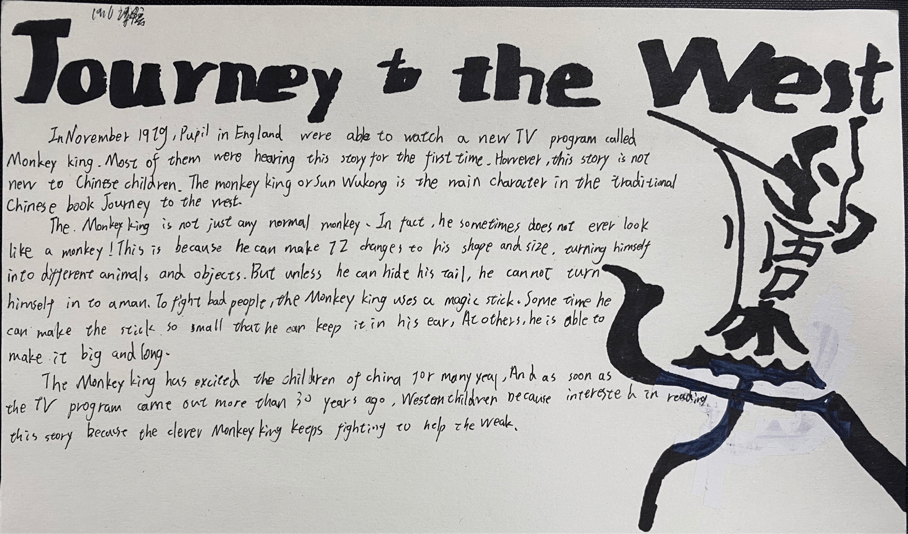 Journey to the West
In November 1979, Pupil in England were able to watch a new TV program called
Monkey king. Most of them were hearing this story for the first time. However, this story is not
new to Chinese children. The monkey king or Sun Wukong is the main character in the traditional
Chinese book Journey to the west.
The Monkey king is not just any normal monkey. In fact, he sometimes does not ever look
like a monkey! This is because he can make 72 changes to his shape and size, turning himself
into different animals and objects. But unless he can hide his tail, he cannot turn
himself in to a man. To fight bad people, the Monkey king uses a magic stick. Some time he
can make the stick so small that he can keep it in his ear, At others, he is able to
make it big and long.
The Monkey king has excited the children of china for many year, And as soon as
the TV program came out more than 30 years ago, Weston children because interested in reading
this story because the clever Monkey king keeps fighting to help the weak.
悟